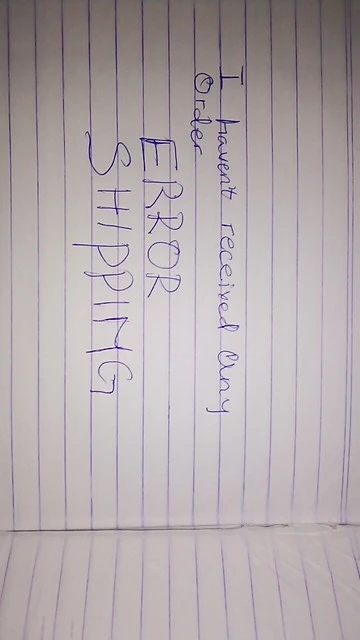 I haven't received any
Order
ERROR
SHIPPING